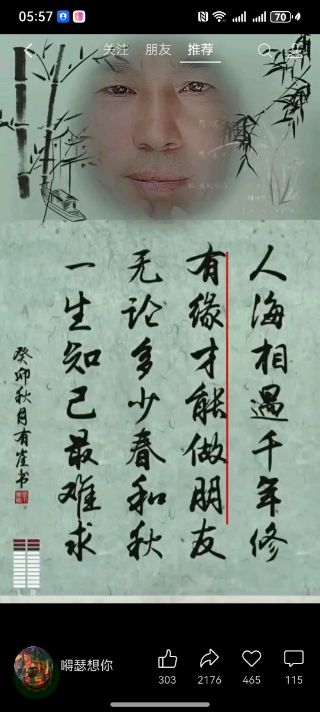 05:57
70
关注 朋友 推荐
人海相遇千年修
有缘才能做朋友
无论多少春和秋
一生知己最难求
癸卯秋月有崔书
L R
嘚瑟想你
303
2176
465
115